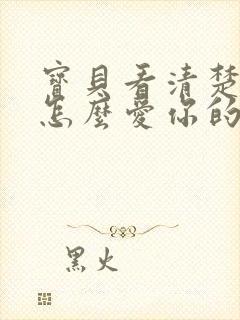 寶貝看清楚
怎麼愛你的
黑火